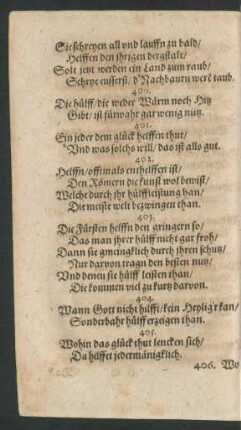 Sie schreyen all vnd lauffn zu bald/
Helffen den jhrigen dergstalt/
Solt jetzt werden ein Land zum raub/
Schrye eusserst/ d'Nachbaurn werē taub.
400.
Die hülff/ die weder Wärm noch Hitz
Gibt/ ist fürwahr gar wenig nütz.
401.
Ein jeder dem glück helffen thut/
Vnd was solchs will/ das ist alls gut.
402.
Helffn/ offtmals enthelffen ist/
Den Römern die kunst wol bewist/
Welche durch jhr hülffleistung han/
Die meiste welt bezwingen than.
403.
Die Fürsten helffn den gringern so/
Das man jhrer hülff nicht gar froh/
Dann sie gmeingklich durch jhren schutz/
Nur darvon tragn den besten nutz/
Vnd denen sie hülff leisten than/
Die kommen viel zu kurtz darvon.
404.
Wann Gott nicht hilfft/ kein Heylig'r kan/
Sonderbahr hülff erzeigen than.
405.
Wohin das glück thut lencken sich/
Da hilffet jedermänigklich.
406. Wo